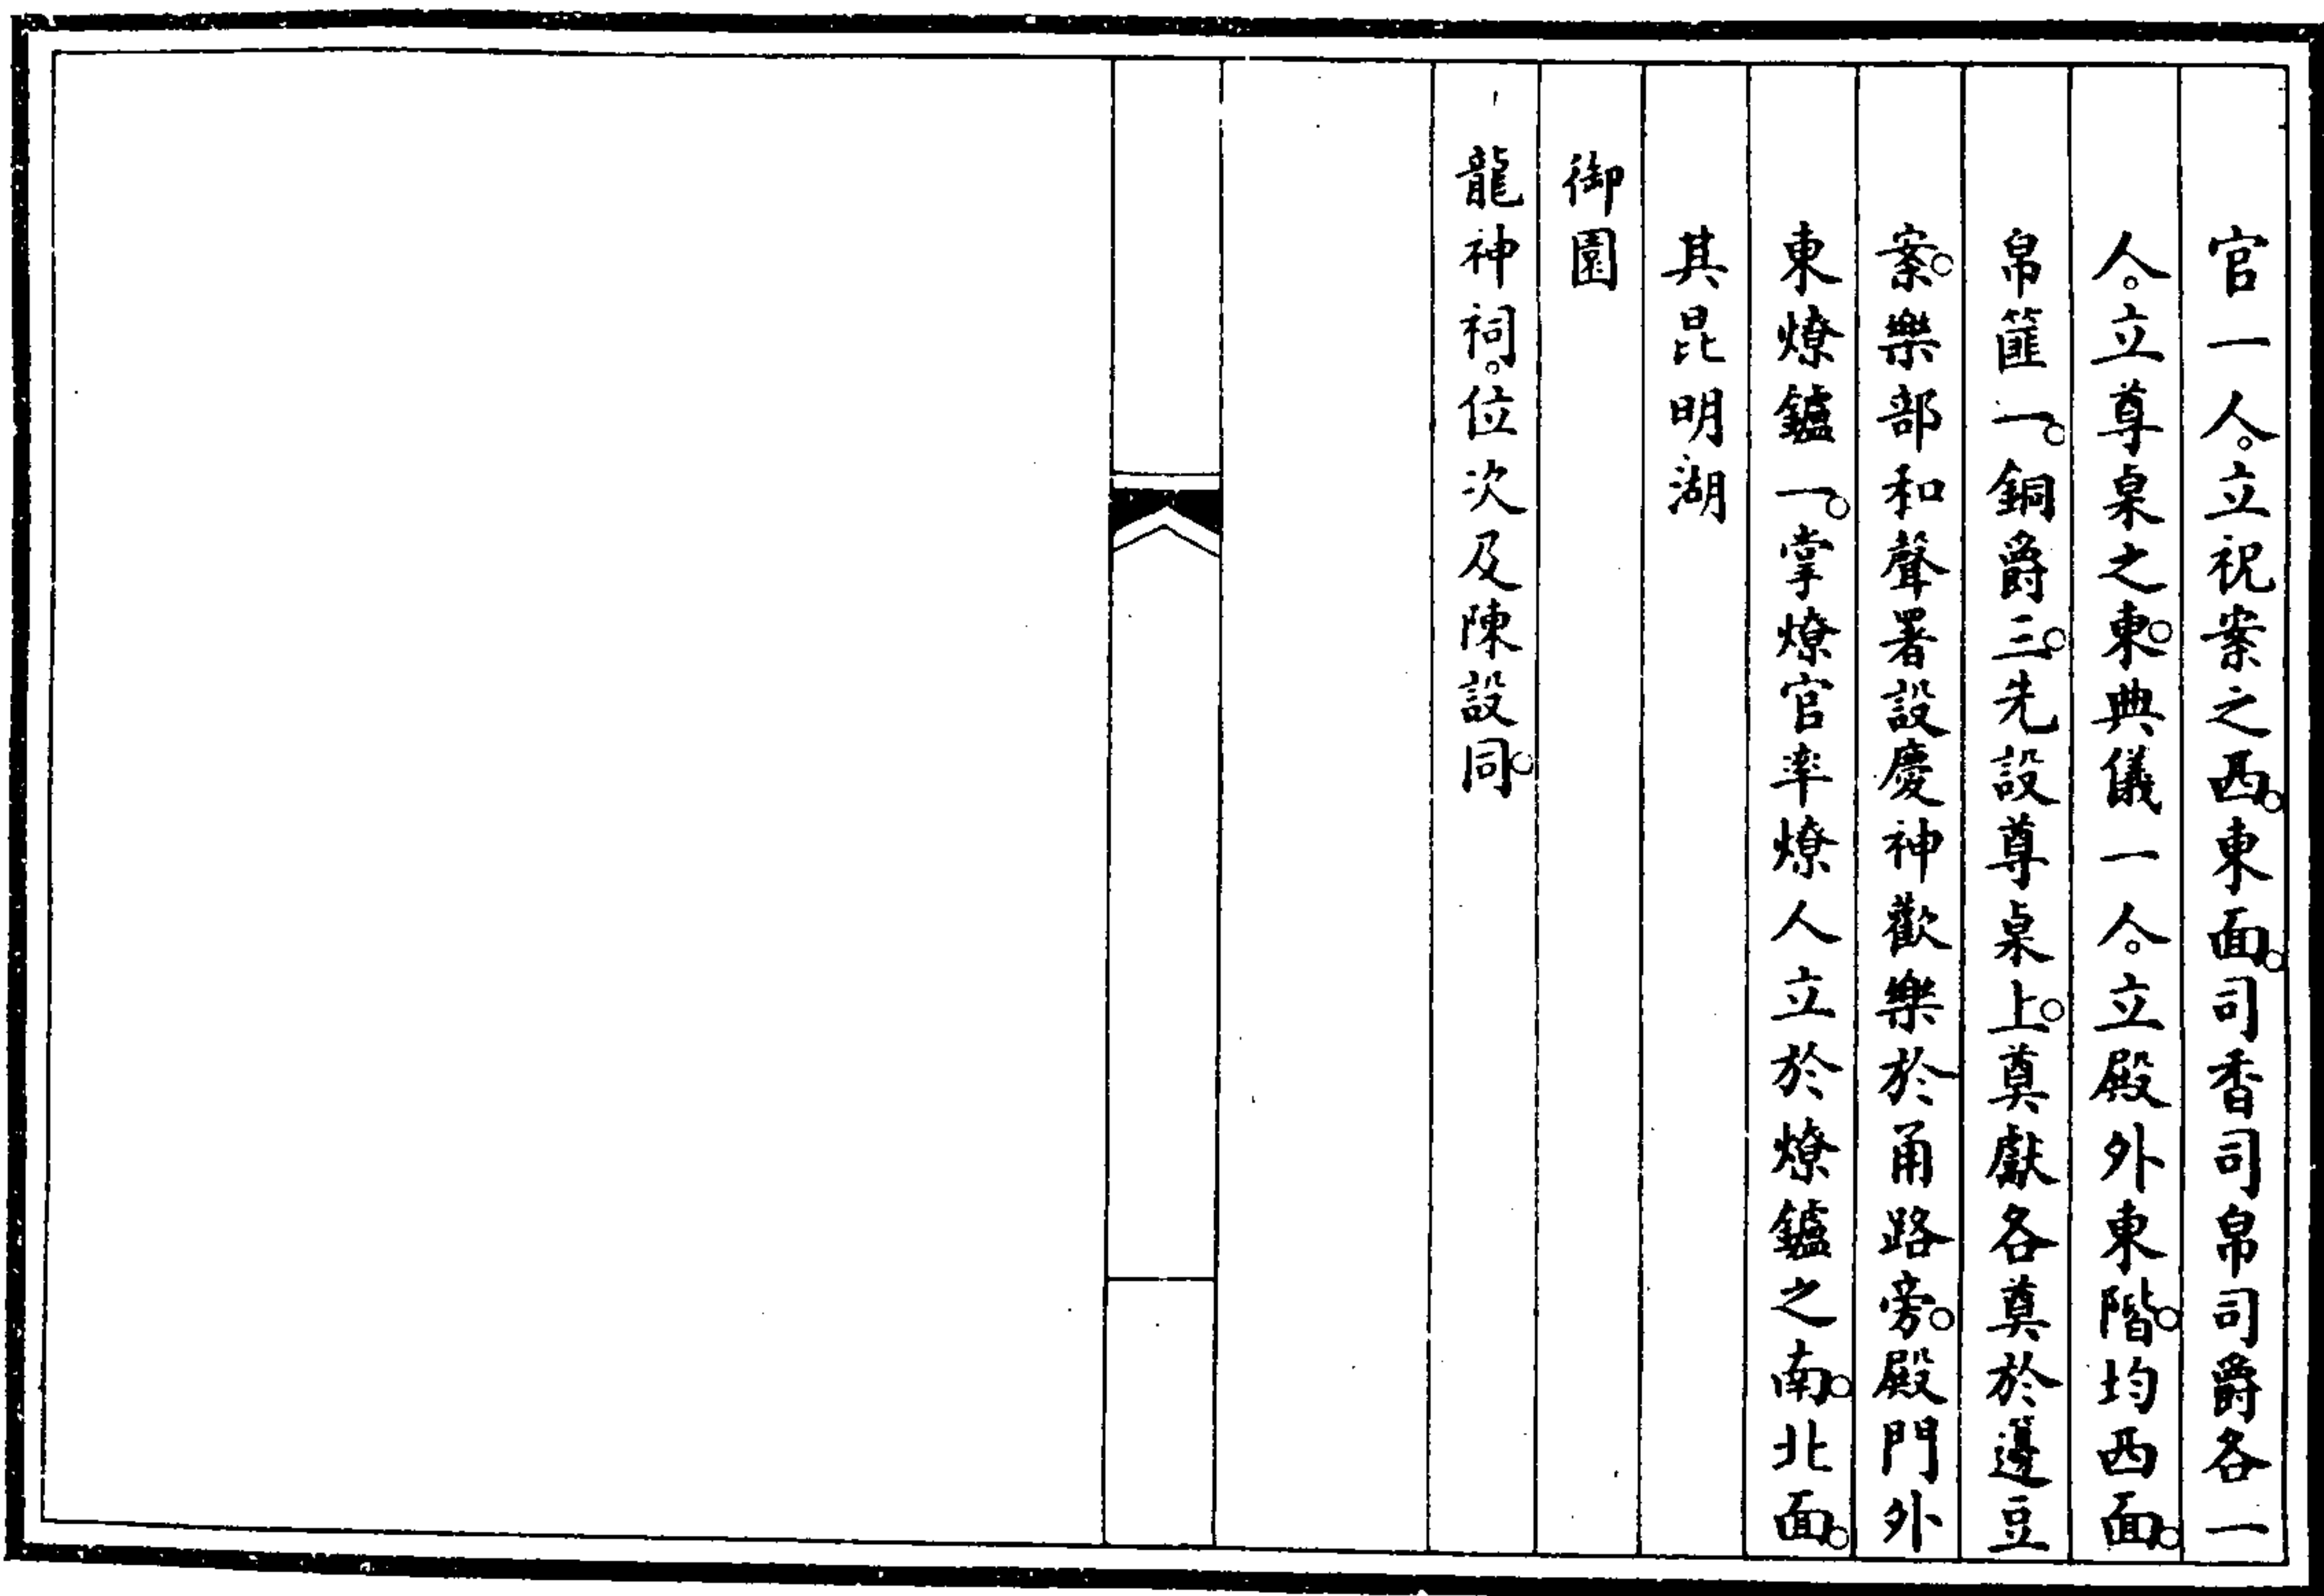 官一人。立祝案之西。東面。司香司帛司爵各一
人。立尊桌之東。典儀一人。立殿外東階。均西面。
帛篚一。銅爵三。先設尊桌上。奠獻各奠於籩豆
案。樂部和聲署設慶神歡樂於甬路旁。殿門外
東燎鑪一。掌燎官率燎人立於燎鑪之南。北面。
其昆明湖
御園
龍神祠。位次及陳設同。